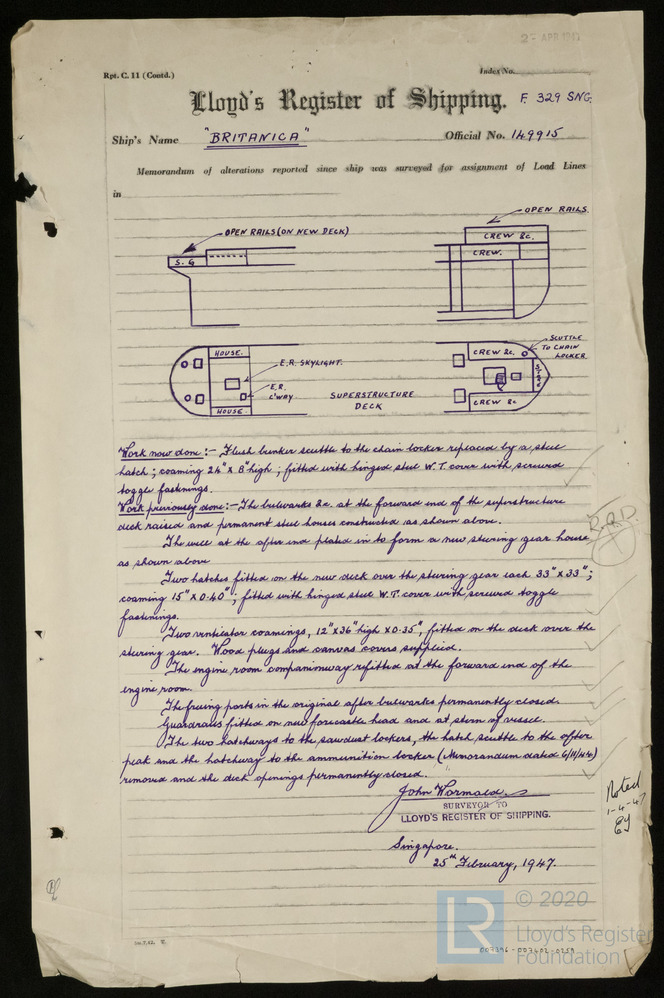 27 APR 1947
Rpt. C. 11 (Contd.)
Index No.
Lloyd's Register of Shipping. F. 329 SNG.
Ship's Name "BRITANICA" Official No. 149915
Memorandum of alterations reported since ship was surveyed for assignment of Load Lines
in
OPEN RAILS.
OPEN RAILS (ON NEW DECK)
CREW &c.
S. G
CREW.
HOUSE.
E.R. SKYLIGHT.
E.R.
C'WAY
HOUSE.
SUPERSTRUCTURE
DECK
SCUTTLE
TO CHAIN
LOCKER
CREW &c.
CREW &c
Work now done :- Flush bunker scuttle to the chain locker replaced by a steel
hatch ; coaming 24" x 8" high ; fitted with hinged steel W.T. cover with screwed
toggle fastenings.
Work previously done :- The bulwarks &c. at the forward end of the superstructure
deck raised and permanent steel houses constructed as shown above.
The well at the after end plated in to form a new steering gear house
as shown above
Two hatches fitted on the new deck over the steering gear each 33" x 33" ;
coaming 15" x 0.40" ; fitted with hinged steel W.T. cover with screwed toggle
fastenings.
Two ventilator coamings, 12" x 36" high x 0.35", fitted on the deck over the
steering gear. Wood plugs and canvas covers supplied.
The engine room companionway refitted at the forward end of the
engine room.
The freeing ports in the original after bulwarks permanently closed.
Guardrails fitted on new forecastle head and at stern of vessel.
The two hatchways to the sawdust lockers, the hatch scuttle to the after
peak and the hatchway to the ammunition locker (Memorandum dated 6/11/44)
removed and the deck openings permanently closed.
John Wormald.
SURVEYOR TO
LLOYD'S REGISTER OF SHIPPING.
Singapore.
25th February, 1947.
Noted
1-4-47
EJ
LR
© 2020
Lloyd's Register
Foundation
007396-007402-0259